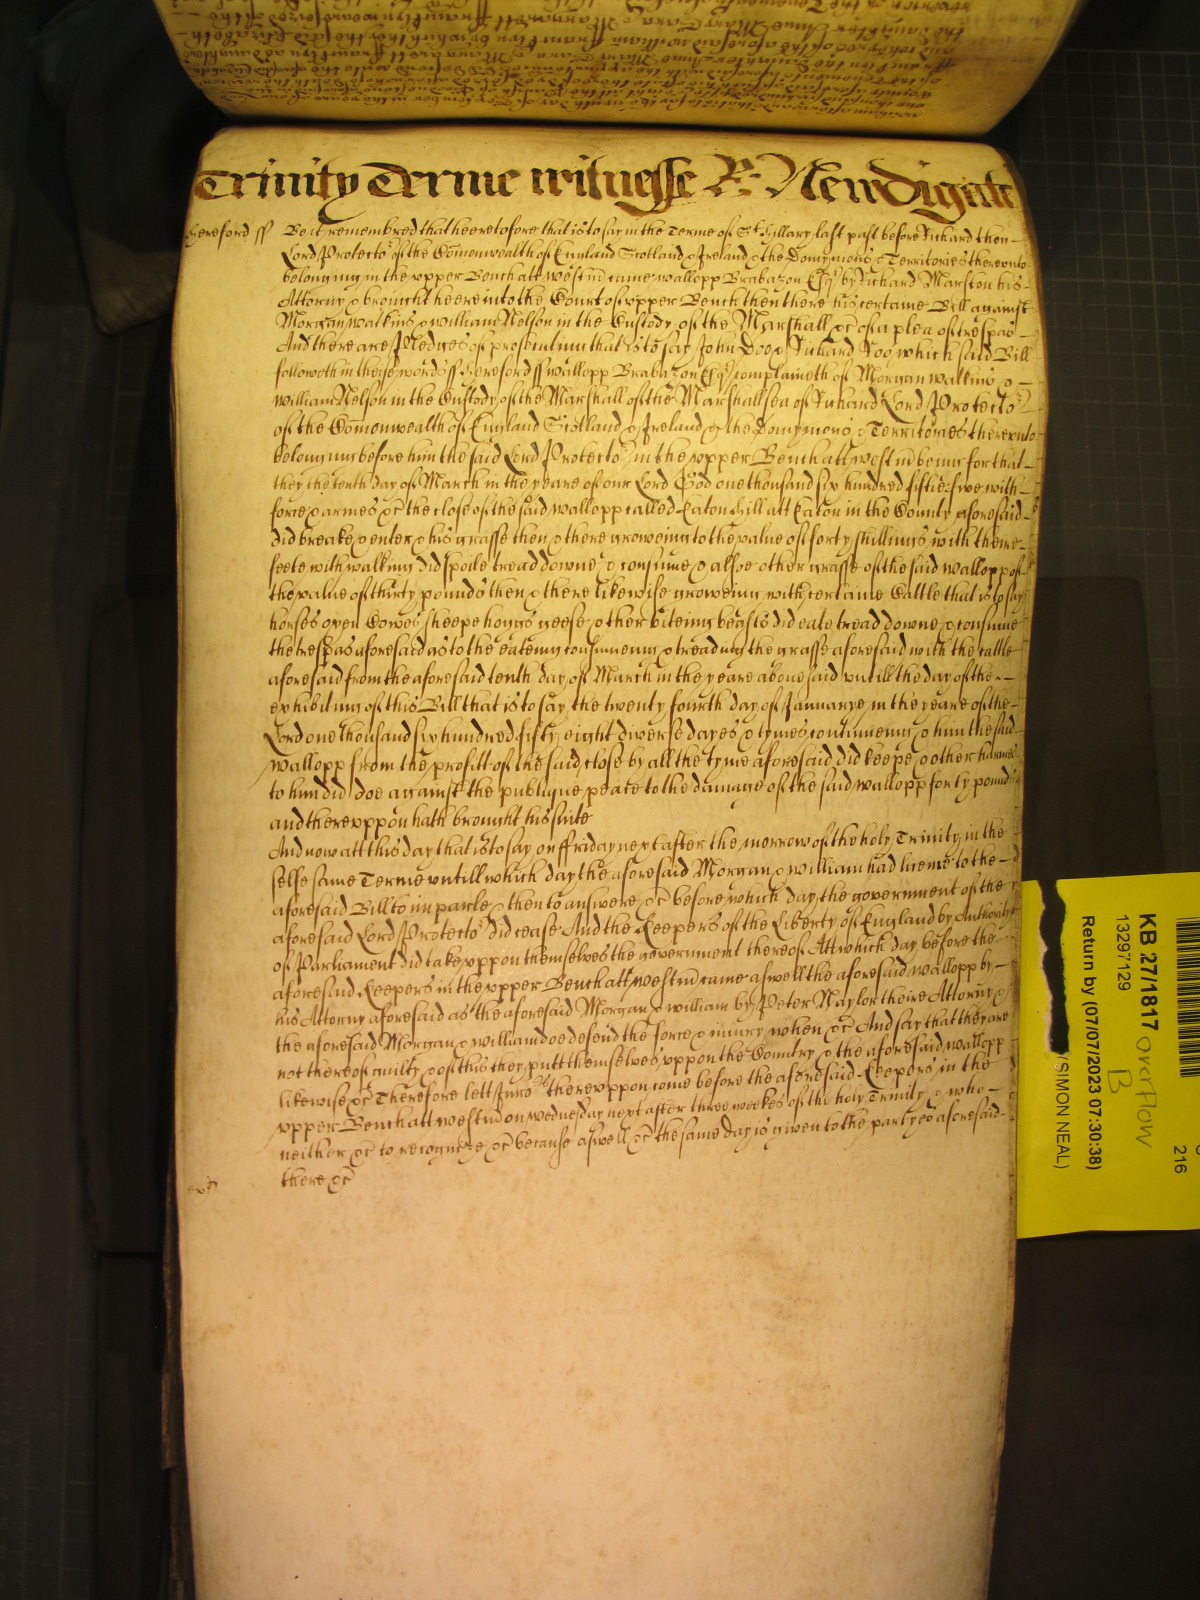 Trinity Terme witnesse R: Newdigate
Hereford ss Be it remembred that heeretofore that is to say in the Terme of St Hillary last past before Richard then
Lord Protector of the Comonwealth of England Scotland & Ireland & the Domynions & Territories thereunto
belonging in the upper Bench att westm came wallopp Brabazon Esqr by Richard Marston his
Attorny & brought heere into the Court of upper Bench then there his certaine Bill against
Morgan watkins & william Nelson in the Custody of the Marshall &c of a plea of trespas
And there are Pledges of prosecuting that is to say John Doe & Richard Roo which said Bill
followeth in theise words ss Hereford ss wallopp Brabazon Esqr complaineth of Morgan watkins &
william Nelson in the Custody of the Marshall of the Marshallsea of Richard Lord Protector
of the Comonwealth of England Scotland & Ireland & the Domynions & Territories thereunto
belonging before him the said Lord Protector in the upper Bench att westm being for that
they the tenth day of March in the yeare of our Lord God one thousand six hundred fiftie five with
force & armes &c the close of the said wallopp called Eaton hill att Eaton in the County aforesaid
did breake & enter & his grasse then & there groweing to the value of forty shillings with theire
feete with walking did spoile tread downe & consume & alsoe other grasse of the said wallopp of
the value of thirty pounds then & there likewise groweing with certaine Cattle that is to say
horses oxen Cowes sheepe hoggs geese & other biteing beasts did eate tread downe & consume
the trespas aforesaid as to the eateing consumeing & treading the grasse aforesaid with the cattle
aforesaid from the aforesaid tenth day of March in the yeare abovesaid untill the day of the
exhibiting of this Bill that is to say the twenty fourth day of January in the yeare of the
Lord one thousand six hundred fifty eight diverse dayes & tymes continueing & him the said
wallopp from the profitt of the said close by all the tyme aforesaid did keepe & other harmes
to him did doe against the publique peace to the damage of the said wallopp forty pounds
and thereuppon hath brought his suite
And now att this day that is to say on ffriday next after the morrow of the holy Trinity in the
selfe same Terme untill which day the aforesaid Morgan & william had licence to the
aforesaid Bill to imparle & then to answere &c before which day the government of the
aforesaid Lord Protector did cease And the Keepers of the Liberty of England by Authority
of Parliament did take uppon themselves the government thereof Att which day before the
aforesaid Keepers in the upper Bench att westm came aswell the aforesaid wallopp by
his Attorny aforesaid as the aforesaid Morgan & william by Peter Naylor theire Attorny &
the aforesaid Morgan & william doe defend the force & injury when &c And say that they are
not thereof guilty & of this they putt themselves uppon the Country & the aforesaid wallopp
likewise &c Therefore lett Jury thereuppon come before the aforesaid Keepers in the
upper Bench att westm on wednesday next after three weekes of the holy Trinity & who
neither &c to recognize &c because aswell &c the same day is given to the partyes aforesaid
there &c
KB 27/1817 overflow
13297129
B
Return by (07/07/2023 07:30:38)
(SIMON NEAL)
216